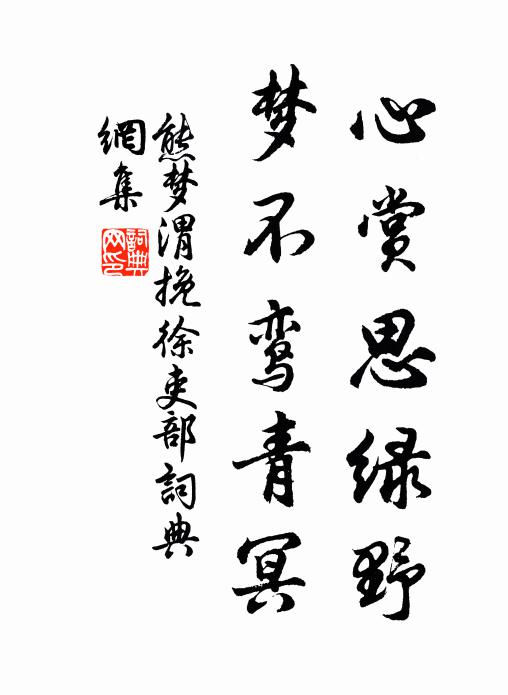 心赏思绿野
梦不鸾青冥
熊梦渭挽徐吏部詞典
網集
詞典
网印